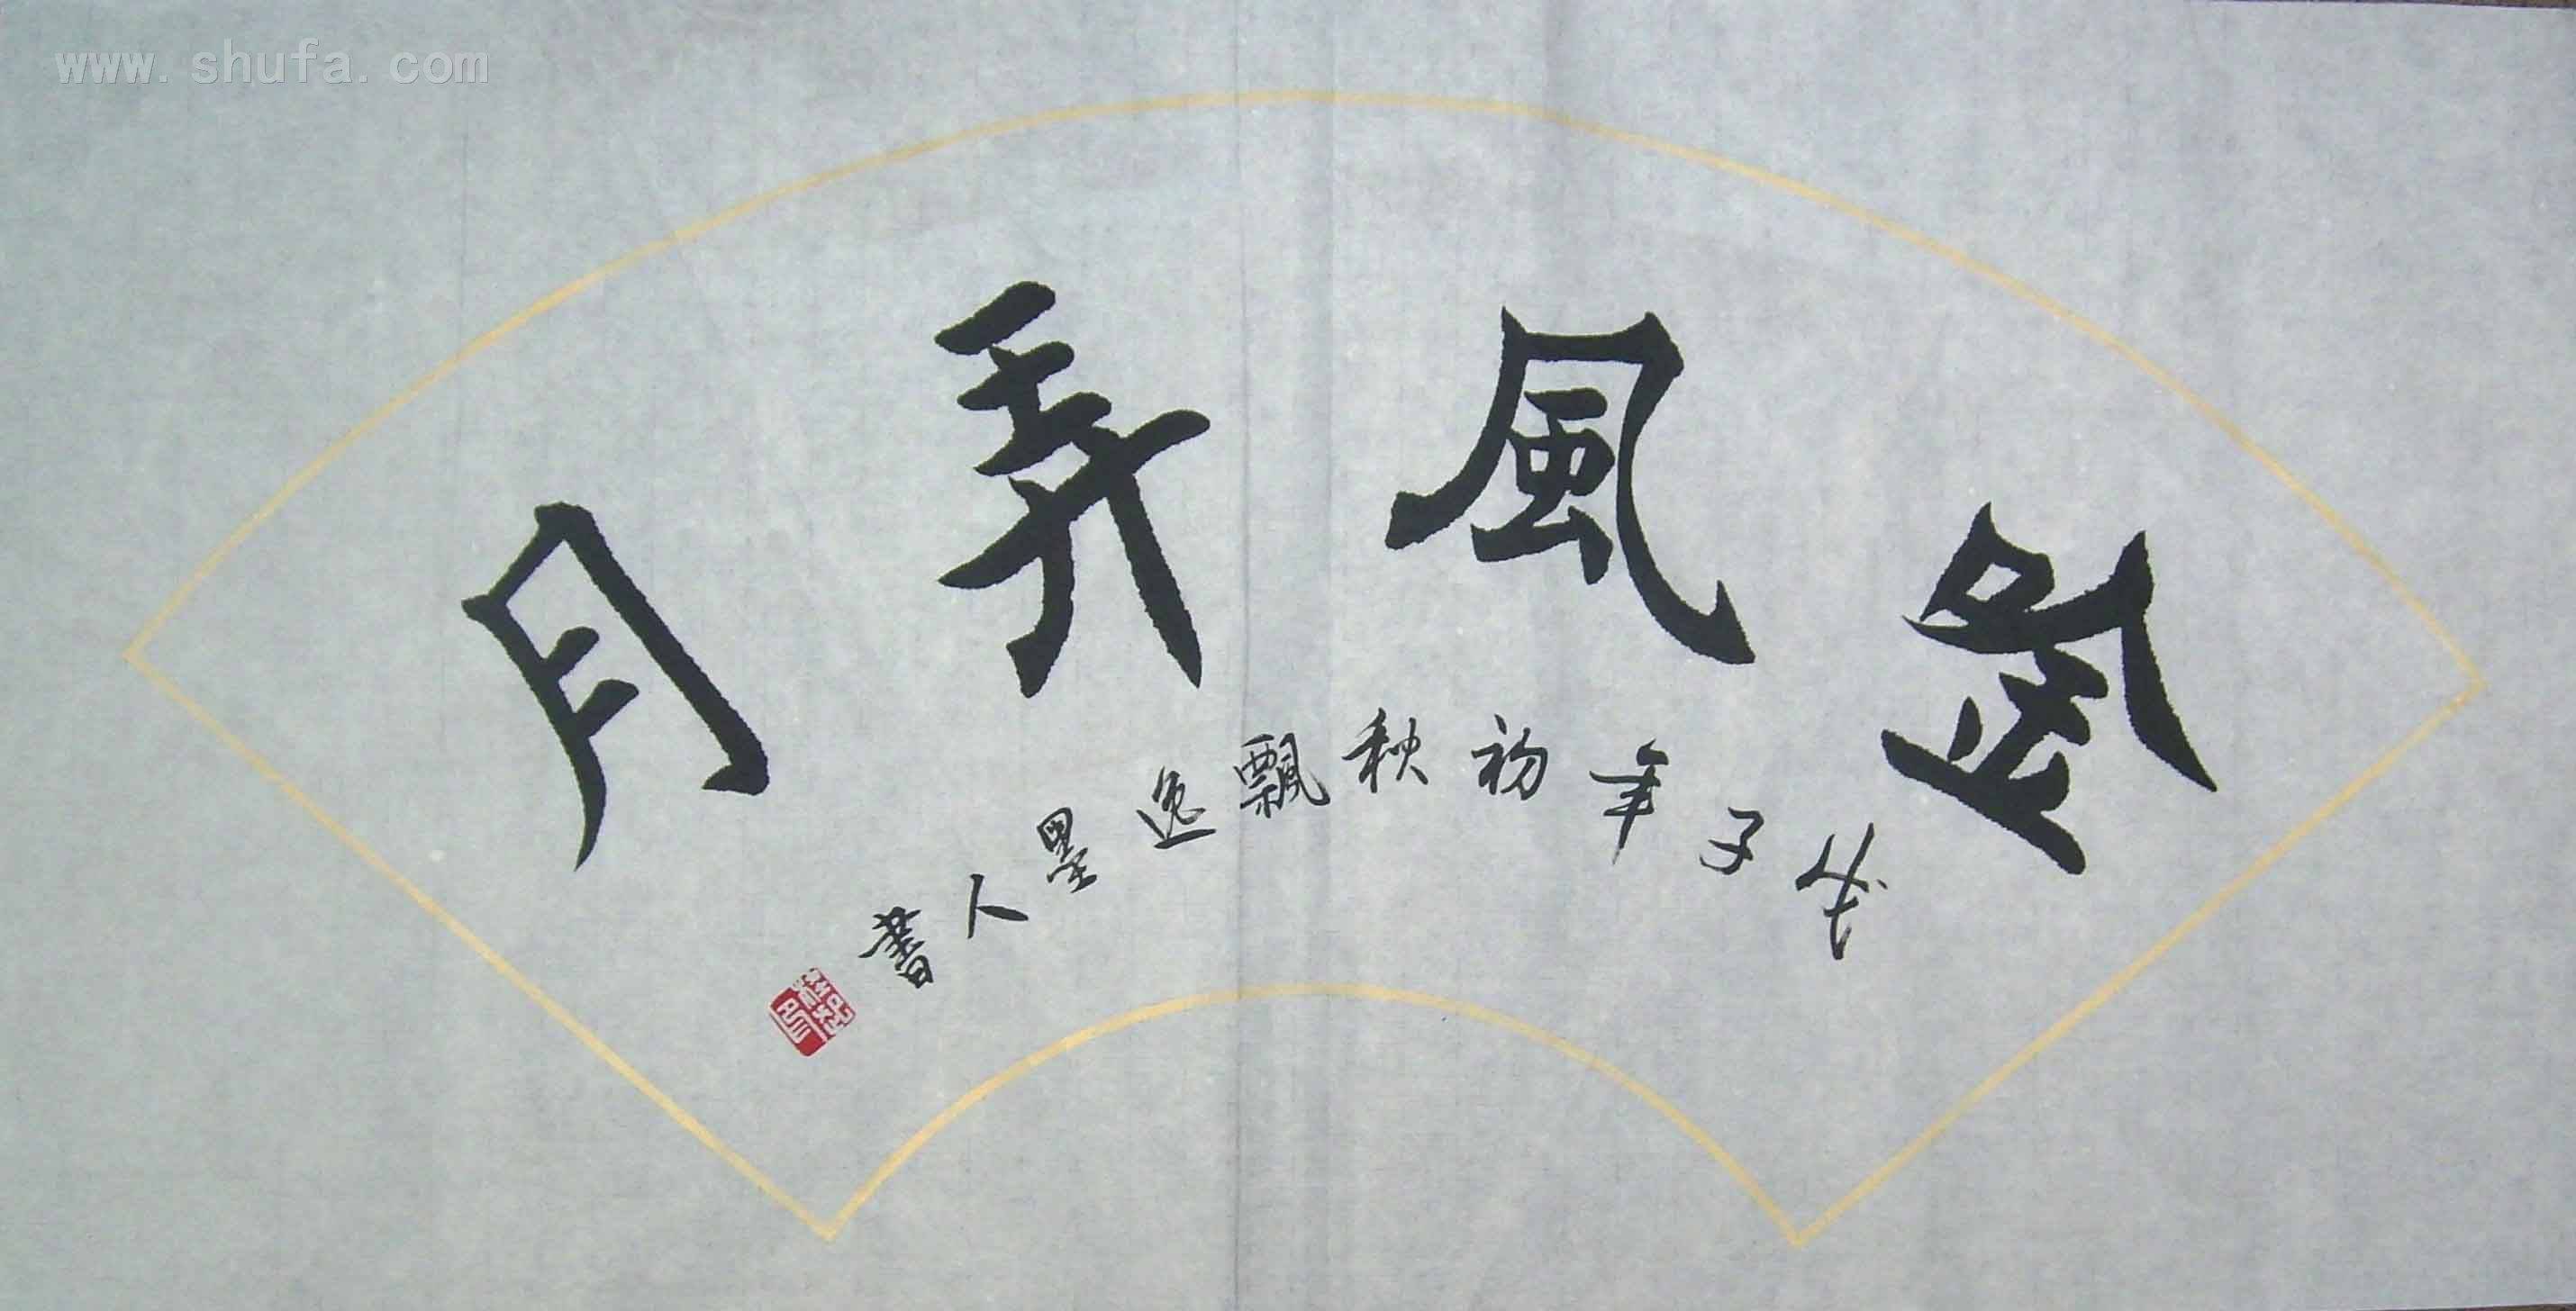 www.shufa.com
唫風弄月
戊子年初秋飄逸墨人書